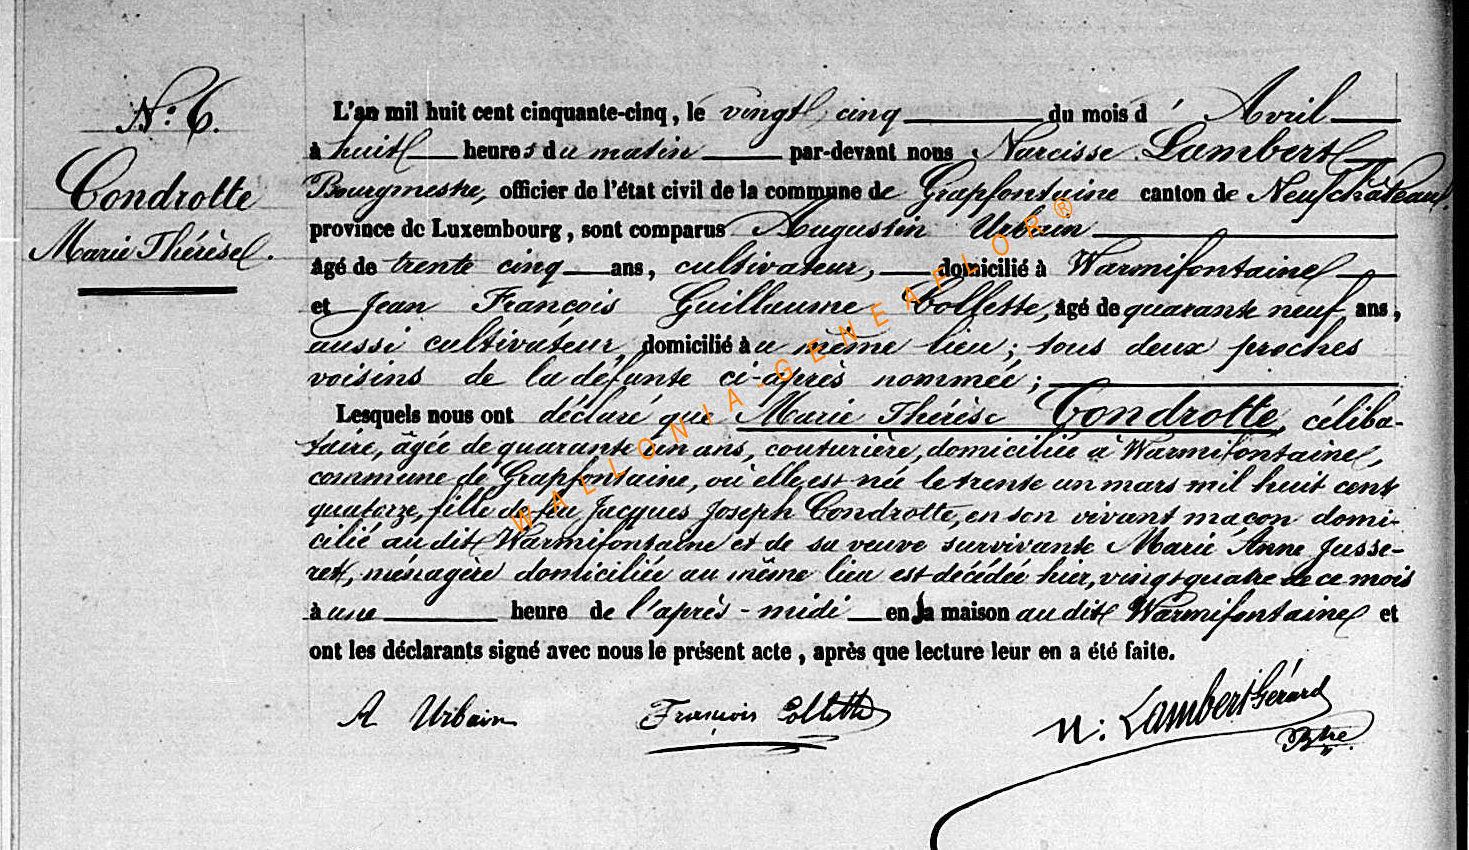 N.º 6.
Condrotte
Marie Thérèse.
L'an mil huit cent cinquante-cinq, le vingt cinq du mois d' Avril
à huit heures du matin par-devant nous Narcisse Lambert
Bourgmestre, officier de l'état civil de la commune de Grapfontaine canton de Neufchâteau,
province de Luxembourg, sont comparus Augustin Urbain
âgé de trente cinq ans, cultivateur, domicilié à Warmifontaine
et Jean François Guillaume Collette, âgé de quarante neuf ans,
aussi cultivateur, domicilié au même lieu; tous deux proches
voisins de la défunte ci-après nommée;
Lesquels nous ont déclaré que Marie Thérèse Condrotte, céliba-
taire, âgée de quarante un ans, couturière, domiciliée à Warmifontaine,
commune de Grapfontaine, où elle est née le trente un mars mil huit cent
quatorze, fille de feu Jacques Joseph Condrotte, en son vivant maçon domi-
cilié au dit Warmifontaine et de sa veuve survivante Marie Anne Jusse-
ret, ménagère domiciliée au même lieu est décédée hier, vingt quatre de ce mois
à une heure de l'après-midi en sa maison au dit Warmifontaine et
ont les déclarants signé avec nous le présent acte, après que lecture leur en a été faite.
A Urbain François Collette N: Lambert Gérard
Btre
WALLONIA-GENEAFLOR®